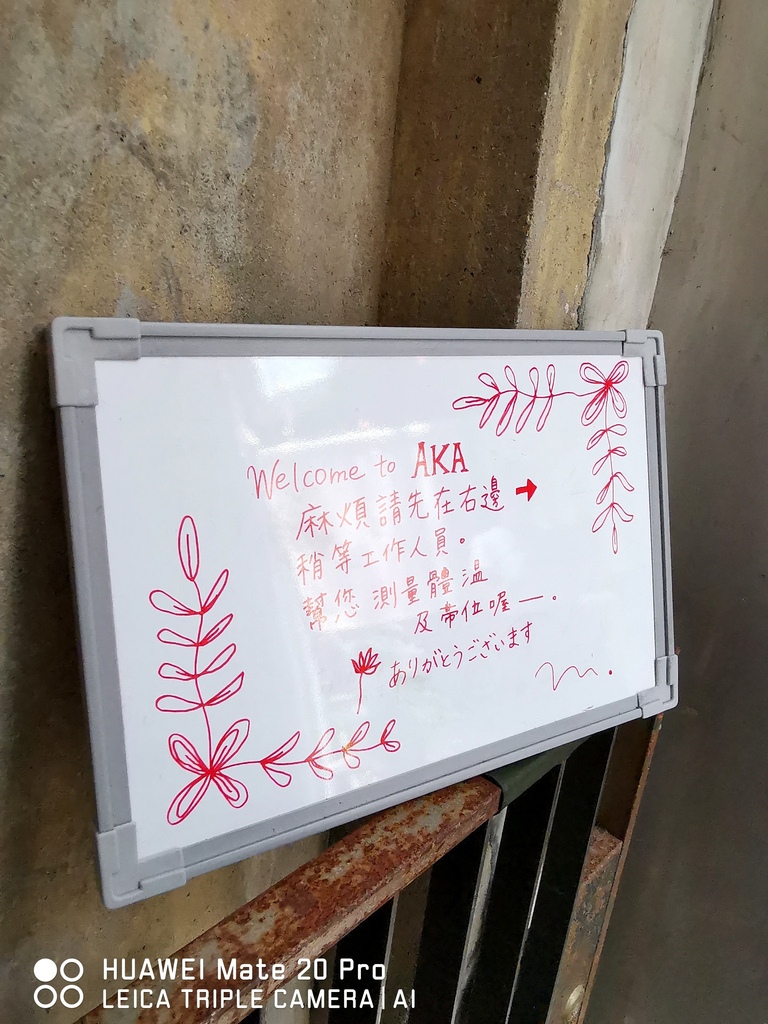 Welcome to AKA
麻煩請先在右邊 →
稍等工作人員。
幫您 測量體溫
及帶位喔—。
ありがとうございます
HUAWEI Mate 20 Pro
LEICA TRIPLE CAMERA | AI